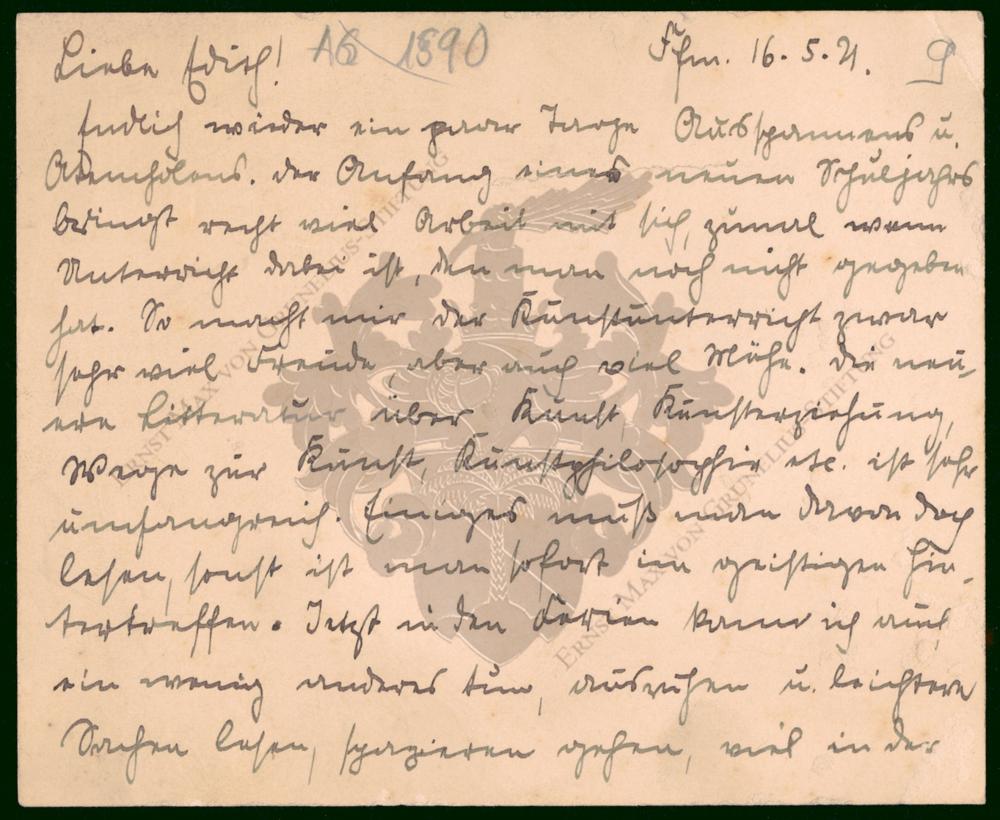 Liebe Edith! AG 1890 Ffm. 16. 5. 21. 9
Endlich wieder ein paar Tage Ausspannens u.
Atemholens. Der Anfang eines neuen Schuljahrs
bringt recht viel Arbeit mit sich, zumal wenn
Unterricht dabei ist, den man noch nicht gegeben
hat. So macht mir der Kunstunterricht zwar
sehr viel Freude, aber auch viel Mühe. Die neu-
ere Litteratur über Kunst, Kunsterziehung,
Wege zur Kunst, Kunstphilosophie etc. ist sehr
umfangreich. Einiges muß man davon doch
lesen, sonst ist man sofort im geistigen Hin-
tertreffen. Jetzt in den Ferien kann ich auch
ein wenig anderes tun, ausruhen u. leichtere
Sachen lesen, spazieren gehen, viel in der
ERNST MAX VON GRUNELIUS-STIFTUNG
ERNST MAX VON GRUNELIUS-STIFTUNG